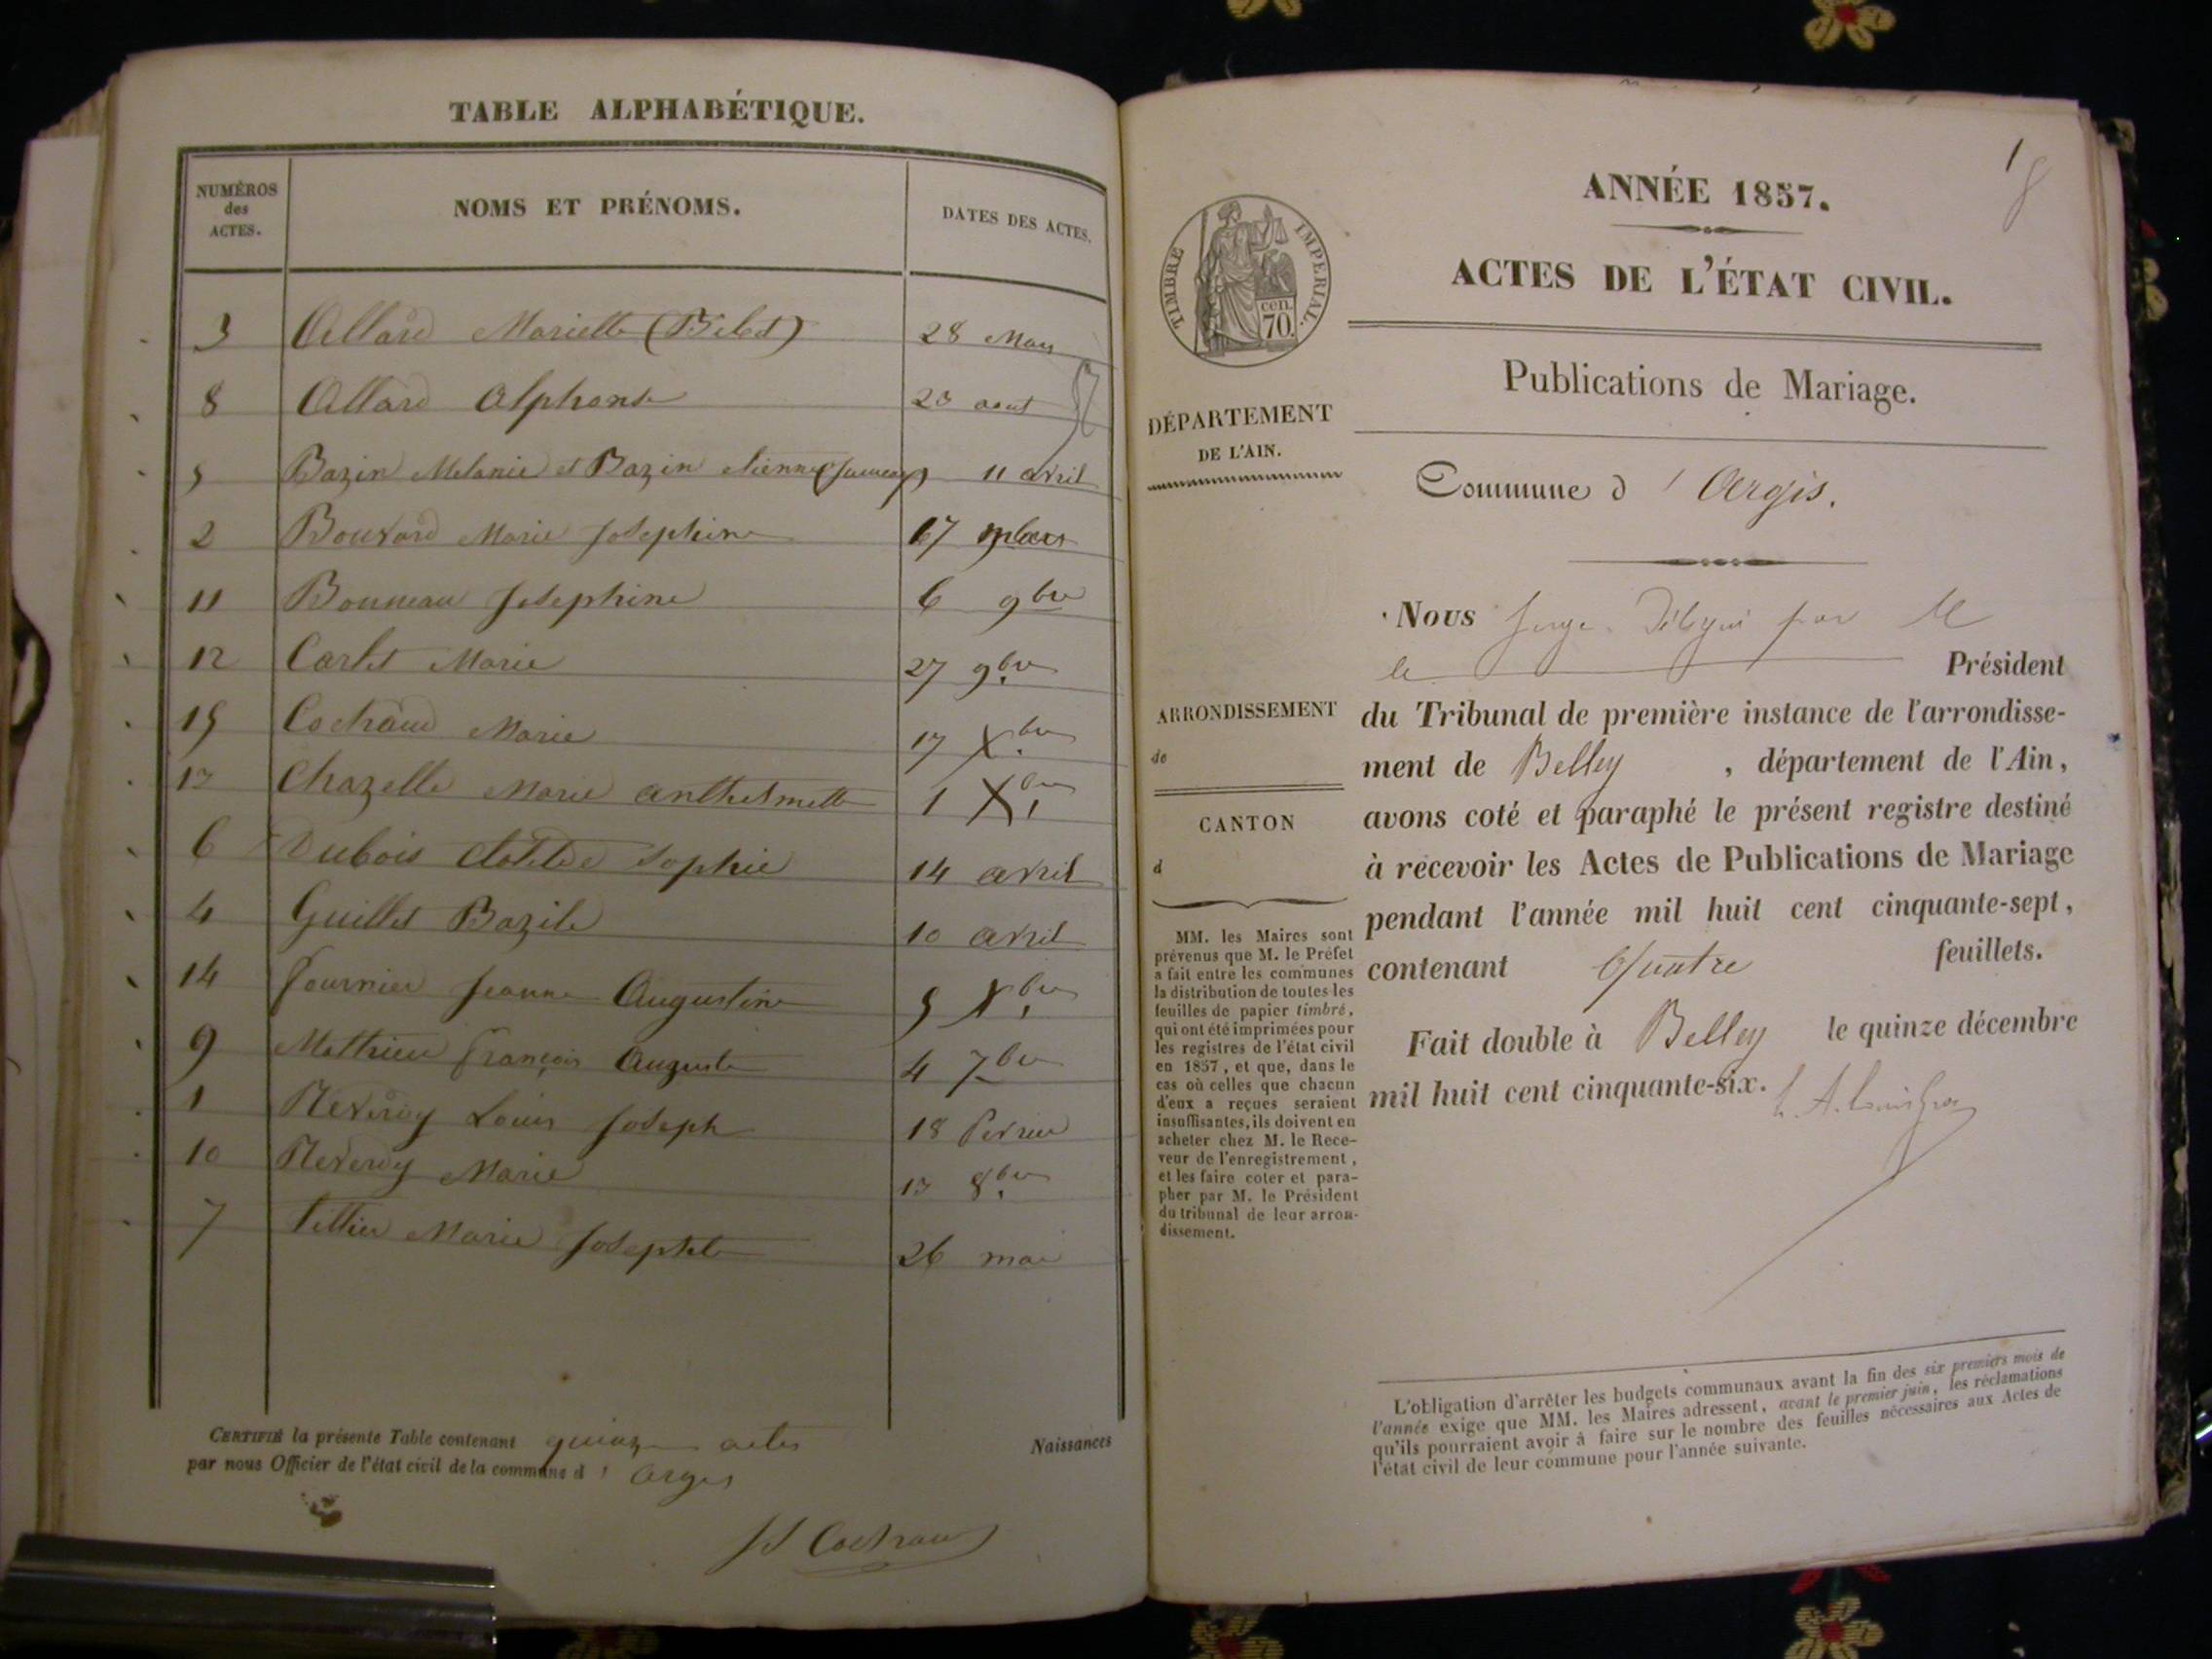 TABLE ALPHABÉTIQUE.
NUMÉROS
des
ACTES.
NOMS ET PRÉNOMS.
DATES DES ACTES.
3 Allard Mariette 28 Mars
8 Allard Alphonse 20 aout
5 Bazin Melanie et Bazin etienne (Jumeaux) 11 avril
2 Bouvard Marie Josephine 17 Mars
11 Bonneau Josephine 6 9bre
12 Carlet Marie 27 9bre
15 Cochaud Marie 17 Xbre
13 Chazelle Marie anthelmette 1 Xbre
6 Dubois Clotilde Sophie 14 avril
4 Guillet Bazile 10 avril
14 Fournier Jeanne Augustine 5 Xbre
9 Mathieu François Auguste 4 7bre
1 Reverdy Louis Joseph 18 Fevrier
10 Reverdy Marie 13 8bre
7 Tillier Marie Josephte 26 mai
CERTIFIÉ la présente Table contenant quinze actes
par nous Officier de l'état civil de la commune d' Argis
Naissances
1
ANNÉE 1857.
ACTES DE L'ÉTAT CIVIL.
TIMBRE IMPERIAL.
cen.
70.
Publications de Mariage.
DÉPARTEMENT
DE L'AIN.
Commune d' Argis.
Nous Juge par M
le Président
ARRONDISSEMENT
de
du Tribunal de première instance de l'arrondisse-
ment de Belley , département de l'Ain,
CANTON
d
avons coté et paraphé le présent registre destiné
à recevoir les Actes de Publications de Mariage
pendant l'année mil huit cent cinquante-sept,
contenant Quatre feuillets.
Fait double à Belley le quinze décembre
mil huit cent cinquante-six.
MM. les Maires sont
prévenus que M. le Préfet
a fait entre les communes
la distribution de toutes les
feuilles de papier timbré,
qui ont été imprimées pour
les registres de l'état civil
en 1857, et que, dans le
cas où celles que chacun
d'eux a reçues seraient
insuffisantes, ils doivent en
acheter chez M. le Rece-
veur de l'enregistrement,
et les faire coter et para-
pher par M. le Président
du tribunal de leur arron-
dissement.
L'obligation d'arrêter les budgets communaux avant la fin des six premiers mois de
l'année exige que MM. les Maires adressent, avant le premier juin, les réclamations
qu'ils pourraient avoir à faire sur le nombre des feuilles nécessaires aux Actes de
l'état civil de leur commune pour l'année suivante.